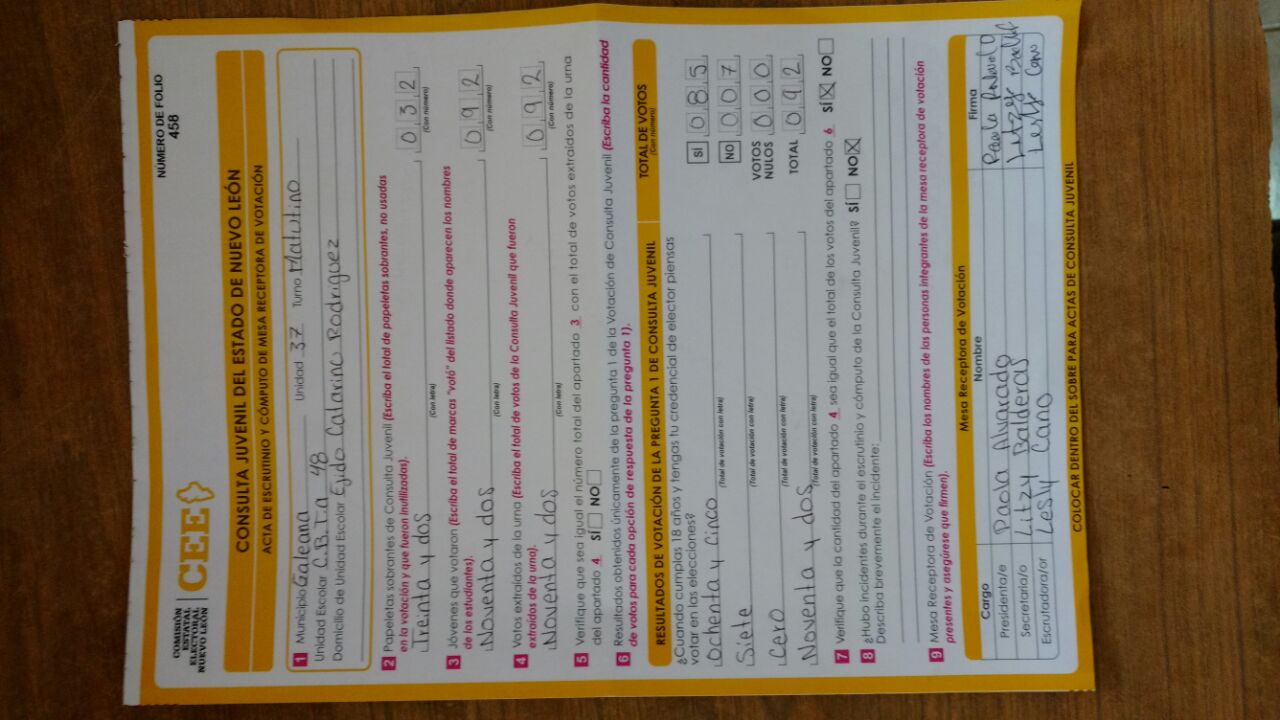 COMISIÓN
ESTATAL
ELECTORAL
NUEVO LEÓN
CEE
NÚMERO DE FOLIO
458
CONSULTA JUVENIL DEL ESTADO DE NUEVO LEÓN
ACTA DE ESCRUTINIO Y CÓMPUTO DE MESA RECEPTORA DE VOTACIÓN
1 Municipio Galeana Unidad 37 Turno Matutino
Unidad Escolar C.B.T.a 48
Domicilio de Unidad Escolar Ejido Catarino Rodriguez
2 Papeletas sobrantes de Consulta Juvenil (Escriba el total de papeletas sobrantes, no usadas
en la votación y que fueron inutilizadas).
Treinta y dos 032
(Con letra) (Con número)
3 Jóvenes que votaron (Escriba el total de marcas "votó" del listado donde aparecen los nombres
de los estudiantes).
Noventa y dos 092
(Con letra) (Con número)
4 Votos extraídos de la urna (Escriba el total de votos de la Consulta Juvenil que fueron
extraídos de la urna).
Noventa y dos 092
(Con letra) (Con número)
5 Verifique que sea igual el número total del apartado 3 con el total de votos extraídos de la urna
del apartado 4 SÍ NO
6 Resultados obtenidos únicamente de la pregunta 1 de la Votación de Consulta Juvenil (Escriba la cantidad
de votos para cada opción de respuesta de la pregunta 1).
RESULTADOS DE VOTACIÓN DE LA PREGUNTA 1 DE CONSULTA JUVENIL TOTAL DE VOTOS
(Con número)
¿Cuando cumplas 18 años y tengas tu credencial de elector piensas
votar en las elecciones?
Ochenta y Cinco SI 085
(Total de votación con letra)
Siete NO 007
(Total de votación con letra)
Cero VOTOS NULOS 000
(Total de votación con letra)
Noventa y dos TOTAL 092
(Total de votación con letra)
7 Verifique que la cantidad del apartado 4 sea igual que el total de los votos del apartado 6 SÍ X NO
8 ¿Hubo incidentes durante el escrutinio y cómputo de la Consulta Juvenil? SÍ NO X
Describa brevemente el incidente:
9 Mesa Receptora de Votación (Escriba los nombres de las personas integrantes de la mesa receptora de votación
presentes y asegúrese que firmen).
Mesa Receptora de Votación
Cargo Nombre Firma
Presidenta/e Paola Alvarado
Secretaria/o Litzy Balderas
Escrutadora/or Lesly Cano Lesly Cano
COLOCAR DENTRO DEL SOBRE PARA ACTAS DE CONSULTA JUVENIL